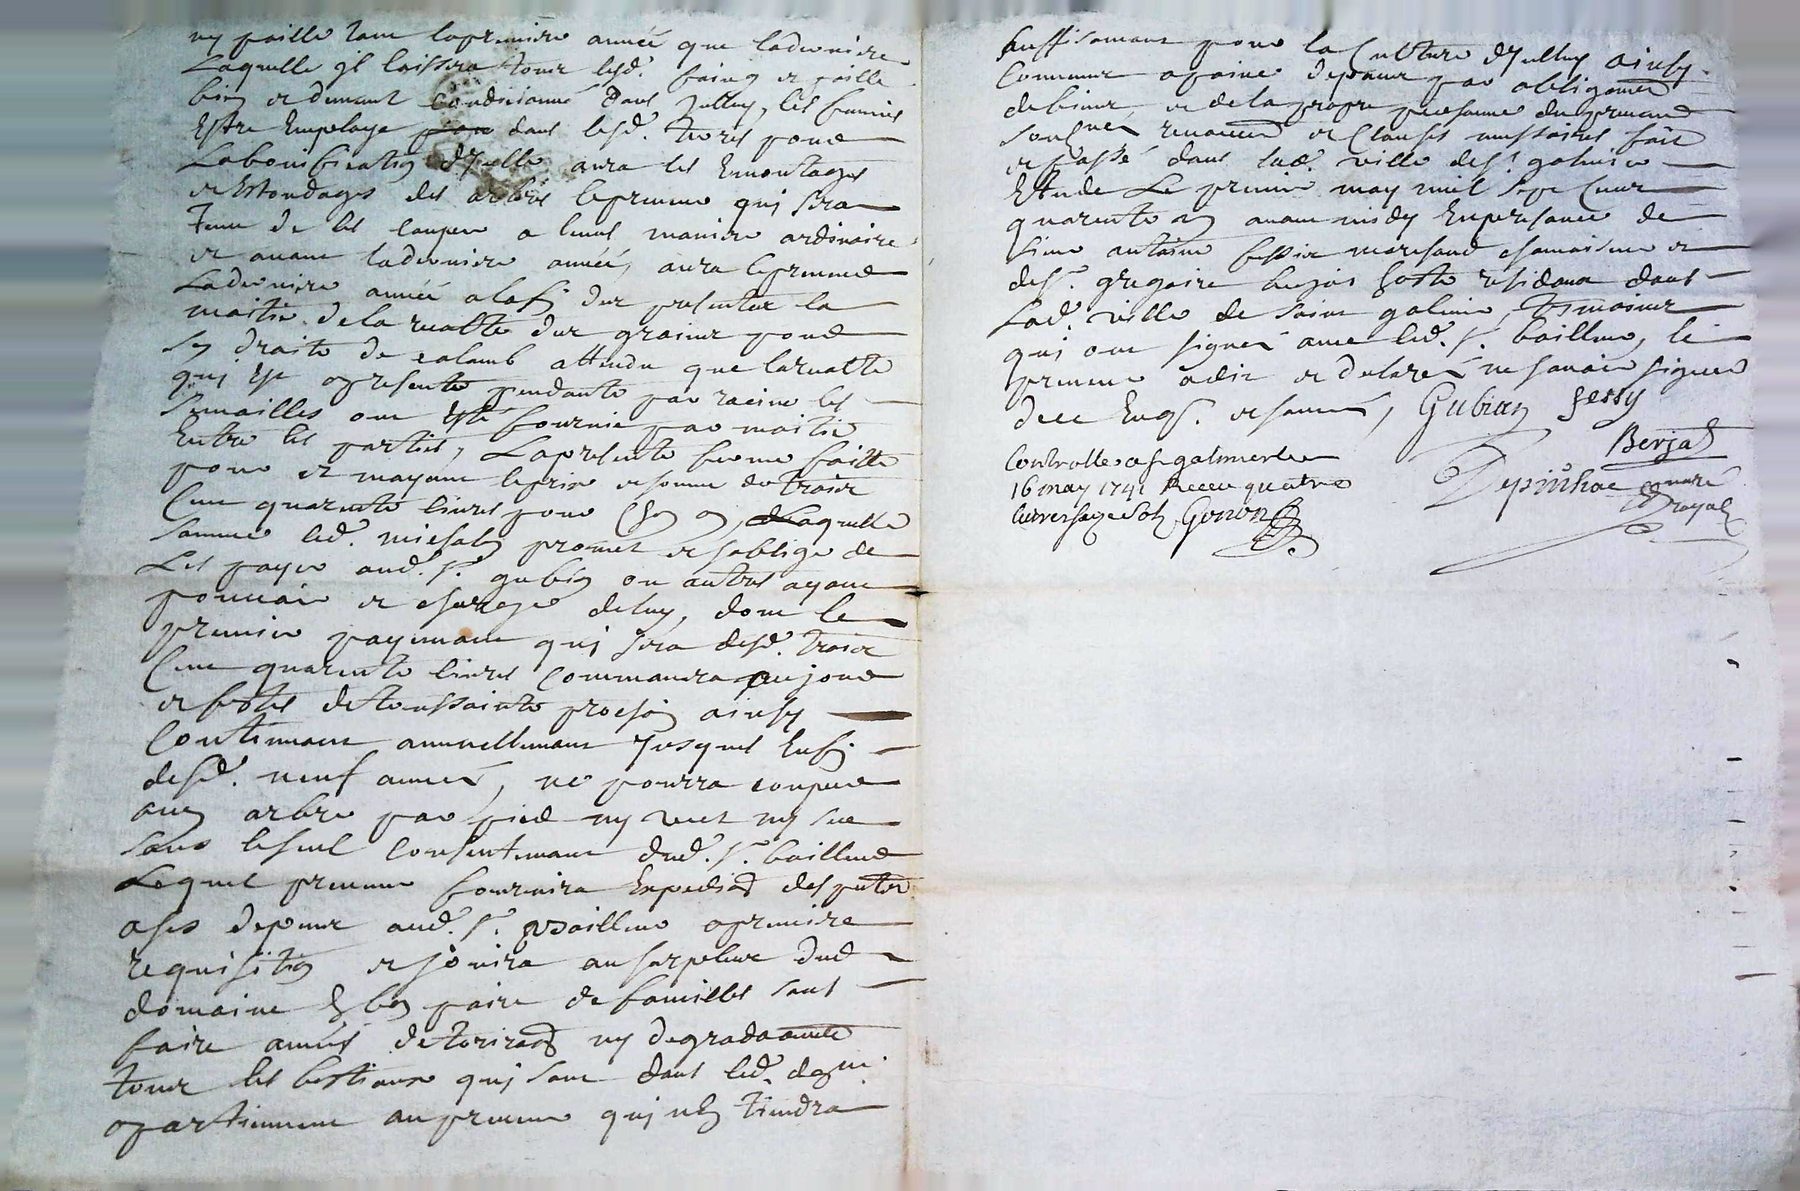 ny paille tant la premiere année que la derniere
Laquelle il laissera tour lesd. foing et paille
bien et dument conditionné dans Jcelluy, les fumies
Estre Employe dans lesd. terres pour
La bonification d'Jcelle aura les Emontages
et Estondages des arbres le preneur qui sera
tenu de les couper a leurs maniere ordinaire
et avant la derniere année, aura le preneur
La derniere année a la fin dur presenter la
moitié de la reolte dur grainr pour
sy droits de calomb attendu que la reolte
qui Est a presente pendante par racine les
semailles ont Esté fournie par moitié
Entre les parties, La presente ferme faitte
pour et moyent le prix et somme de troir
Cent quarente livres pour Chn an, Laquelle
somme led. michalon promet et soblige de
Les payer aud. Sr. gubien ou autres ayant
pouvoir et charge de luy, dont le
premier payement qui sera desd. troir
Cent quarente livres Commancera au jour
et festes de toussaints prochain ainsy
Continuant annuellement Jusques Enfin
desd. neuf années, ne pourra couper
aucun arbre par pied ny vert ny sec
sans lesprel Consentement dud. Sr. bailleur
Lequel preneur fournira Expedion des puter
a ses depenr aud. Sr. Bailleur a premiere
requisition et jouira au surpelur dud
domaine En bon paire de familles sans
faire aucunes detoriraon ny degradaon
tour les bestiaux qui sont dans led. dome
apartiennent au preneur qui en tiendra
suffisament pour la Culture d'Jcelluy ainsy
Convenur a paine depenr par obligaoner
de bienr et de la propre personne du preneur
soubmer renoncer et Clauses nessaires fait
et passé dans lad. ville de St. galmier
Etude Le premier may mil sept Cent
quarente un avant midy En presance de
sieur antoine fessy marchand chamoiseur et
de Sr. gregoire berjat hoste residant dans
Lad. ville de saint galmier, temoinr
qui ont signés avec led. Sr. bailleur, le
preneur a dit et declaré ne savoir signer
de ce Enqs. et sommé, Gubian fessy
Berjat
Controlle a St galmier le
16 may 1741 Receu quatre
livres seize sols Gonon
Depinhac notre
Royal